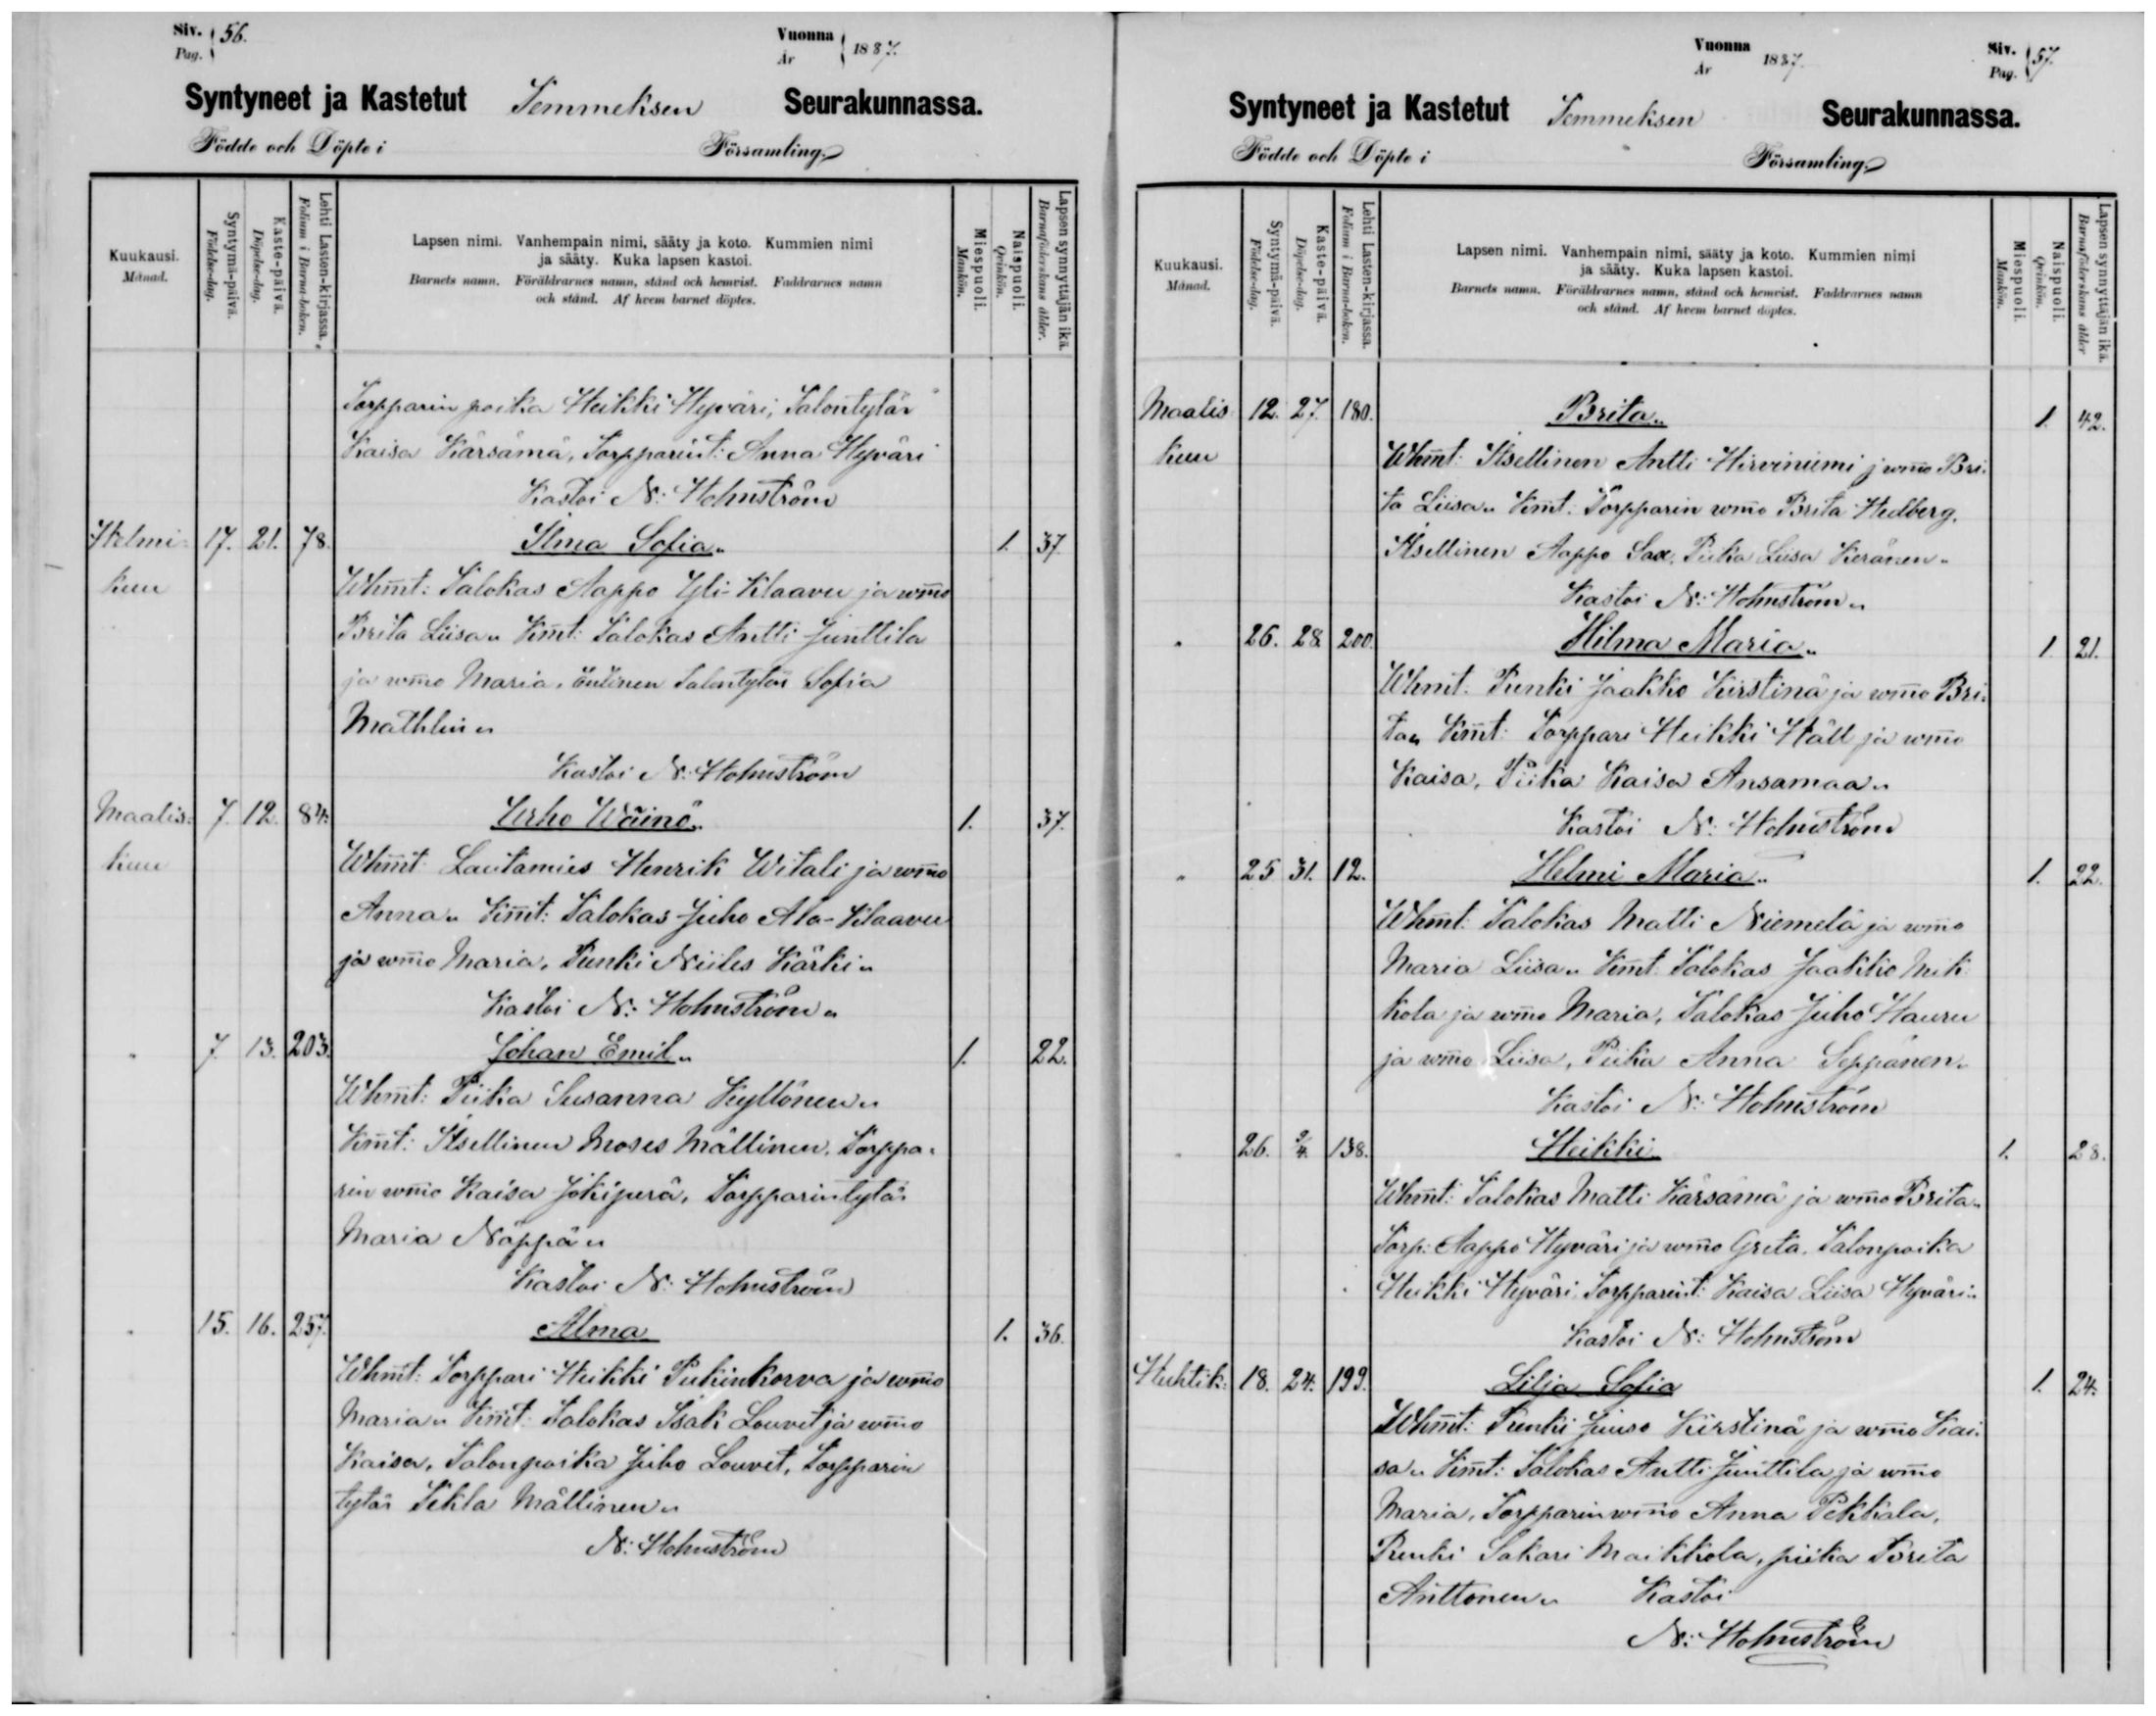 Siv. Pag. 56.
Vuonna År 1887.
Syntyneet ja Kastetut Temmeksen Seurakunnassa.
Födde och Döpte i Församling.
Kuukausi. Månad.
Syntymä-päivä. Födelse-dag.
Kaste-päivä. Döpelse-dag.
Lehti Lasten-kirjassa. Folium i Barna-boken.
Lapsen nimi. Vanhempain nimi, sääty ja koto. Kummien nimi
ja sääty. Kuka lapsen kastoi.
Barnets namn. Föräldrarnes namn, stånd och hemvist. Faddrarnes namn
och stånd. Af hvem barnet döptes.
Miespuoli. Mankön.
Naispuoli. Qvinkön.
Lapsen synnyttäjän ikä. Barnaföderskans ålder.
Torpparin poika Heikki Hyväri, Talontytär
Kaisa Kärsämä, Torpparint: Anna Hyväri
Kastoi N: Holmström
Helmi- 17. 21. 78. Ilma Sofia" 1. 37.
kuu Whmt: Talokas Aappo Yli-Klaavu ja wmo
Brita Liisa" Kmt: Talokas Antti Junttila
ja wmo Maria, Talontytär Sofia
Mathlin"
Kastoi N: Holmström
Maalis- 7. 12. 84. Urho Wäinö" 1. 37.
kuu Whmt Lautamies Henrik Witali ja wmo
Anna" Kmt: Talokas Juho Ala-Klaavu
ja wmo Maria, Renki Niiles Kärki"
Kastoi N: Holmström"
" 7. 13. 203. Johan Emil" 1. 22.
Whmt: Piika Susanna Kyllönen"
Kmt: Itsellinen Moses Mällinen, Torppa-
rin wmo Kaisa Jokiperä, Torpparintytär
Maria Näppä"
Kastoi N: Holmström
" 15. 16. 257. Alma 1. 36.
Whmt: Torppari Heikki Pukinkorva ja wmo
Maria" Kmt: Talokas Isak Louvet ja wmo
Kaisa, Talonpoika Juho Louvet, Torpparin
tytär Tekla Mällinen"
N: Holmström
Vuonna År 1887.
Siv. Pag. 57.
Syntyneet ja Kastetut Temmeksen Seurakunnassa.
Födde och Döpte i Församling.
Kuukausi. Månad.
Syntymä-päivä. Födelse-dag.
Kaste-päivä. Döpelse-dag.
Lehti Lasten-kirjassa. Folium i Barna-boken.
Lapsen nimi. Vanhempain nimi, sääty ja koto. Kummien nimi
ja sääty. Kuka lapsen kastoi.
Barnets namn. Föräldrarnes namn, stånd och hemvist. Faddrarnes namn
och stånd. Af hvem barnet döptes.
Miespuoli. Mankön.
Naispuoli. Qvinkön.
Lapsen synnyttäjän ikä. Barnaföderskans ålder
Maalis- 12. 27. 180. Brita" 1. 42.
kuu Whmt: Itsellinen Antti Hirviniemi j wmo Bri-
ta Liisa" Kmt: Torpparin wmo Brita Hedberg,
Itsellinen Aappo Sax, Piika Liisa Keränen"
Kastoi N: Holmström"
" 26. 28. 200. Hilma Maria" 1. 21.
Whmt. Renki Jaakko Kirstinä ja wmo Bri-
ta" Kmt: Torppari Heikki Häll ja wmo
Kaisa, Piika Kaisa Ansamaa"
Kastoi N: Holmström
" 25 31. 12. Helmi Maria" 1. 22.
Whmt. Talokas Matti Niemelä ja wmo
Maria Liisa" Kmt: Talokas Jaakko Mik-
kola ja wmo Maria, Talokas Juho Hauru
ja wmo Liisa, Piika Anna Seppänen"
Kastoi N: Holmström
" 26. 2/4. 138. Heikki 1. 28.
Whmt: Talokas Matti Kärsämä ja wmo Brita"
Torp: Aappo Hyväri ja wmo Greta, Talonpoika
Heikki Hyväri, Torpparint: Kaisa Liisa Hyväri"
Kastoi N: Holmström
Huhtik: 18. 24. 199. Lilja Sofia 1. 24.
Whmt: Renki Juuso Kirstinä ja wmo Kai-
sa" Kmt: Talokas Antti Junttila ja wmo
Maria, Torpparin wmo Anna Pekkala,
Renki Sakari Maikkola, piika Brita
Anttonen" Kastoi
N: Holmström